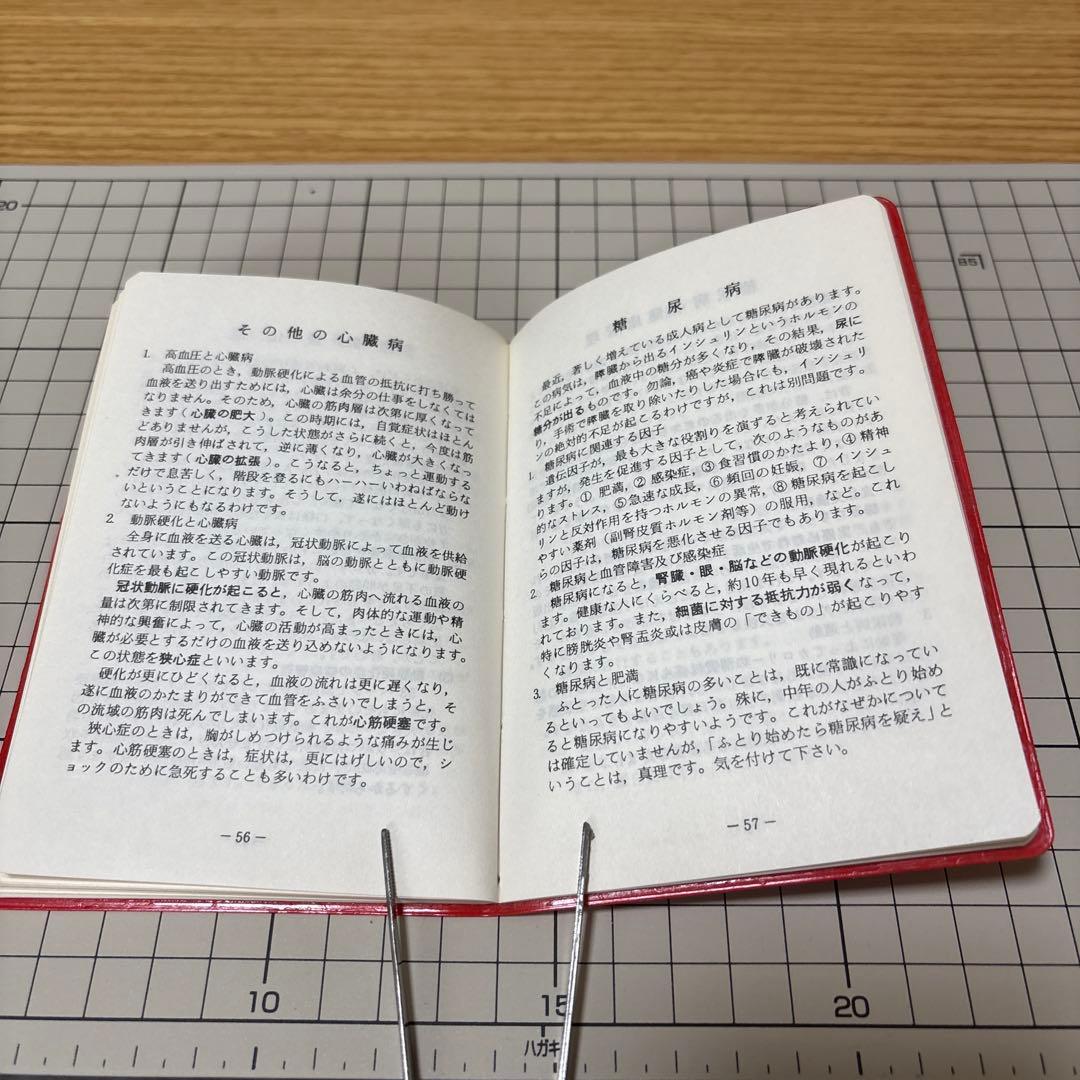 その他の心臓病
1. 高血圧と心臓病
高血圧のとき，動脈硬化による血管の抵抗に打ち勝って
血液を送り出すためには，心臓は余分の仕事をしなくては
なりません。そのため，心臓の筋肉層は次第に厚くなって
きます（心臓の肥大）。この時期には，自覚症状はほとん
どありませんが，こうした状態がさらに続くと，今度は筋
肉層が引き伸ばされて，逆に薄くなり，心臓が大きくなっ
てきます（心臓の拡張）。こうなると，ちょっと運動する
だけで息苦しく，階段を登るにもハーハーいわねばならな
いということになります。そうして，遂にはほとんど動け
ないようにもなるわけです。
2. 動脈硬化と心臓病
全身に血液を送る心臓は，冠状動脈によって血液を供給
されています。この冠状動脈は，脳の動脈とともに動脈硬
化症を最も起こしやすい動脈です。
冠状動脈に硬化が起こると，心臓の筋肉へ流れる血液の
量は次第に制限されてきます。そして，肉体的な運動や精
神的な興奮によって，心臓の活動が高まったときには，心
臓が必要とするだけの血液を送り込めないようになります。
この状態を狭心症といいます。
硬化が更にひどくなると，血液の流れは更に遅くなり，
遂に血液のかたまりができて血管をふさいでしまうと，そ
の流域の筋肉は死んでしまいます。これが心筋硬塞です。
狭心症のときは，胸がしめつけられるような痛みが生じ
ます。心筋硬塞のときは，症状は，更にはげしいので，シ
ョックのために急死することも多いわけです。
－56－
糖尿病
最近，著しく増えている成人病として糖尿病があります。
この病気は，膵臓から出るインシュリンというホルモンの
不足によって，血液中の糖分が多くなり，その結果，尿に
糖分が出るものです。勿論，癌や炎症で膵臓が破壊された
り，手術で膵臓を取り除いたりした場合にも，インシュリ
ンの絶対的不足が起こるわけですが，これは別問題です。
1. 糖尿病に関連する因子
遺伝因子が，最も大きな役割りを演ずると考えられてい
ますが，発生を促進する因子として，次のようなものがあ
ります。① 肥満，② 感染症，③ 食習慣のかたより，④ 精神
的なストレス，⑤急速な成長，⑥ 頻回の妊娠，⑦ インシュ
リンと反対作用を持つホルモンの異常，⑧ 糖尿病を起こし
やすい薬剤（副腎皮質ホルモン剤等）の服用，など。これ
らの因子は，糖尿病を悪化させる因子でもあります。
2. 糖尿病と血管障害及び感染症
糖尿病になると，腎臓・眼・脳などの動脈硬化が起こり
ます。健康な人にくらべると，約10年も早く現れるといわ
れております。また，細菌に対する抵抗力が弱くなって，
特に膀胱炎や腎盂炎或は皮膚の「できもの」が起こりやす
くなります。
3. 糖尿病と肥満
ふとった人に糖尿病の多いことは，既に常識になってい
るといってもよいでしょう。殊に，中年の人がふとり始め
ると糖尿病になりやすいようです。これがなぜかについて
は確定していませんが，「ふとり始めたら糖尿病を疑え」と
いうことは，真理です。気を付けて下さい。
－57－
20
B5
10
15
20
ハガキ